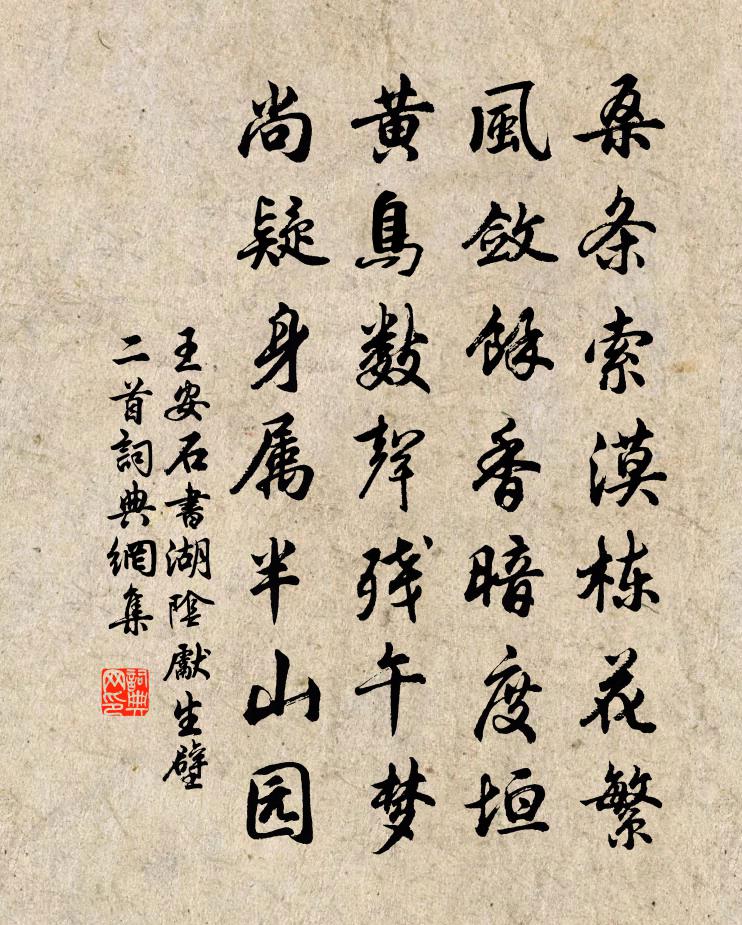 桑条索漠栋花繁
風斂餘香暗度垣
黄鳥数聲残午梦
尚疑身属半山园
王安石書湖陰獻生壁
二首詞典網集
詞典
网印